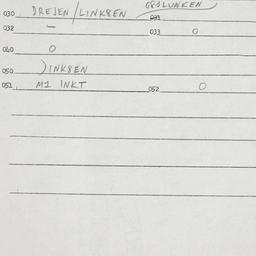 030 DREJEN/LINKSEN GEDLUNKEN
032 — 031
033 O
040 O
050 )INKSEN
051 M1 INKT 052 O